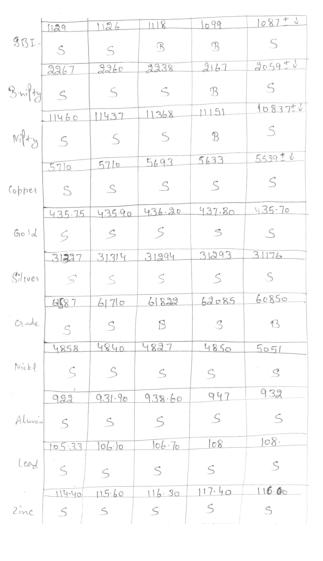 1129 1126 1118 1099 1087 ± ↓
SBI. S S B B S
2267 2260 2238 2167 2059 ± ↓
Bnifty S S S B S
11460 11437 11368 11151 10837 ± ↓
Nifty S S S B S
5710 5710 5693 5633 5539 ± ↓
Copper S S S S S
435.75 435.90 436.20 437.80 435.70
Gold S S S S S
31314 31294 31293 31176
Silver S S S S S
61710 61822 62085 60850
Crude S S B S B
4858 4840 4827 4850 5051
Nickl S S S S S
922 931.90 938.60 947 932
Alumin S S S S S
105.33 106.10 106.70 108 108.
Lead S S S S S
114.40 115.60 116.30 117.40
Zinc S S S S S